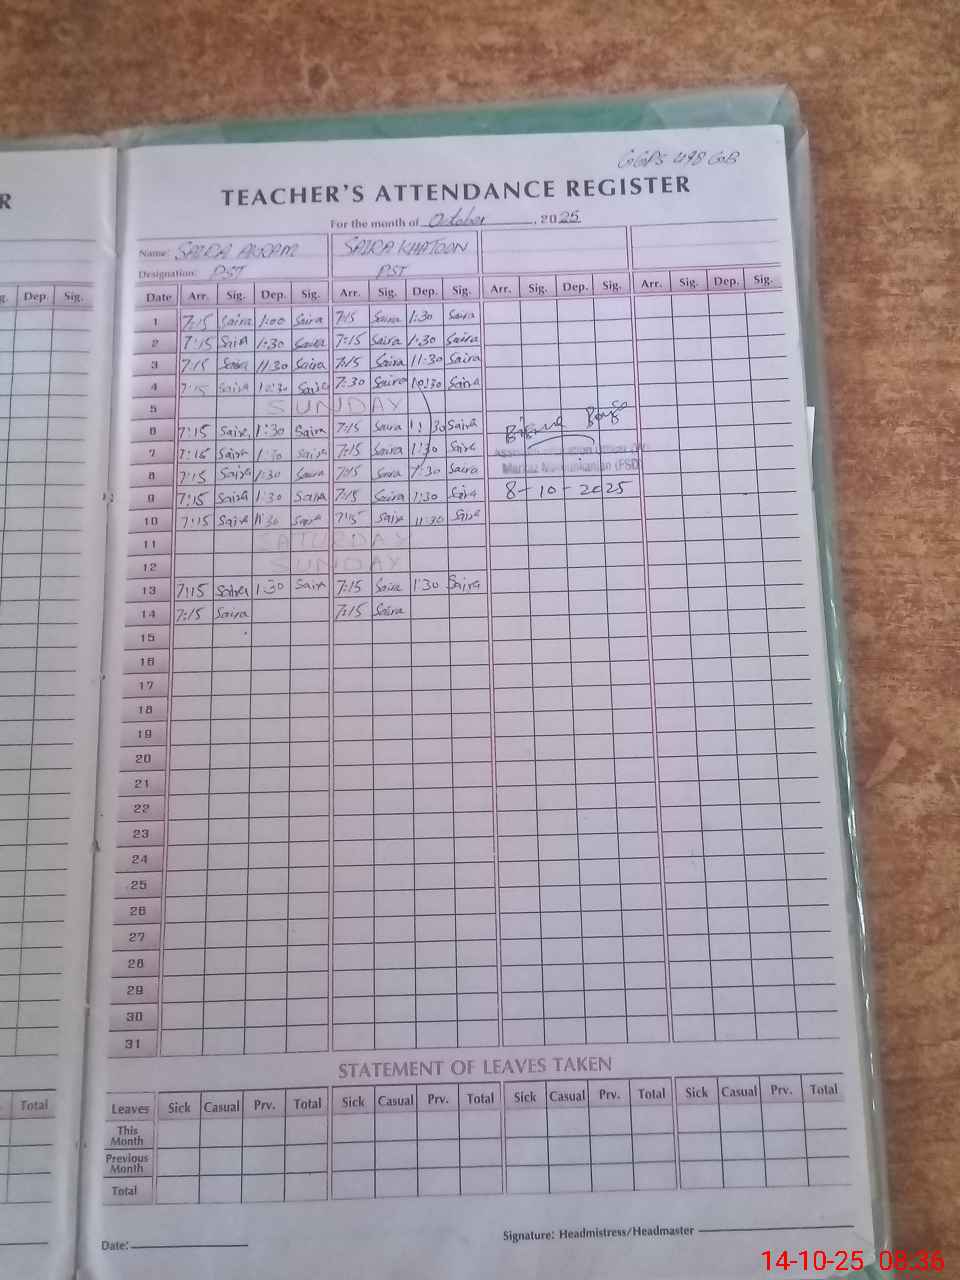 GGPS 498 GB
R
TEACHER'S ATTENDANCE REGISTER
For the month of October, 2025
Name: SAIRA AKRAM SAIRA KHATOON
Designation: PST PST
g. Dep Sig. Date Arr. Sig. Dep. Sig. Arr. Sig. Dep. Sig. Arr. Sig. Dep. Sig. Arr. Sig. Dep. Sig.
1 7:15 Saira 1:00 Saira 7:15 Saira 1:30 Saira
2 7:15 Saira 1:30 Saira 7:15 Saira 1:30 Saira
3 7:15 Saira 11:30 Saira 7:15 Saira 11:30 Saira
4 7:15 Saira 10:30 Saira 7:30 Saira 10:30 Saira
5 SUNDAY
6 7:15 Saira 1:30 Saira 7:15 Saira 1:30 Saira
7 7:15 Saira 1:30 Saira 7:15 Saira 1:30 Saira
8 7:15 Saira 1:30 Saira 7:15 Saira 1:30 Saira
Markaz (FSD)
9 7:15 Saira 1:30 Saira 7:15 Saira 1:30 Saira 8-10-2025
10 7:15 Saira 11:30 Saira 7:15 Saira 11:30 Saira
11 SATURDAY
12 SUNDAY
13 7:15 Saira 1:30 Saira 7:15 Saira 1:30 Saira
14 7:15 Saira 7:15 Saira
15
16
17
18
19
20
21
22
23
24
25
26
27
28
29
30
31
STATEMENT OF LEAVES TAKEN
Total Leaves Sick Casual Prv. Total Sick Casual Prv. Total Sick Casual Prv. Total Sick Casual Prv. Total
This Month
Previous Month
Total
Date: Signature: Headmistress/Headmaster
14-10-25 08:36